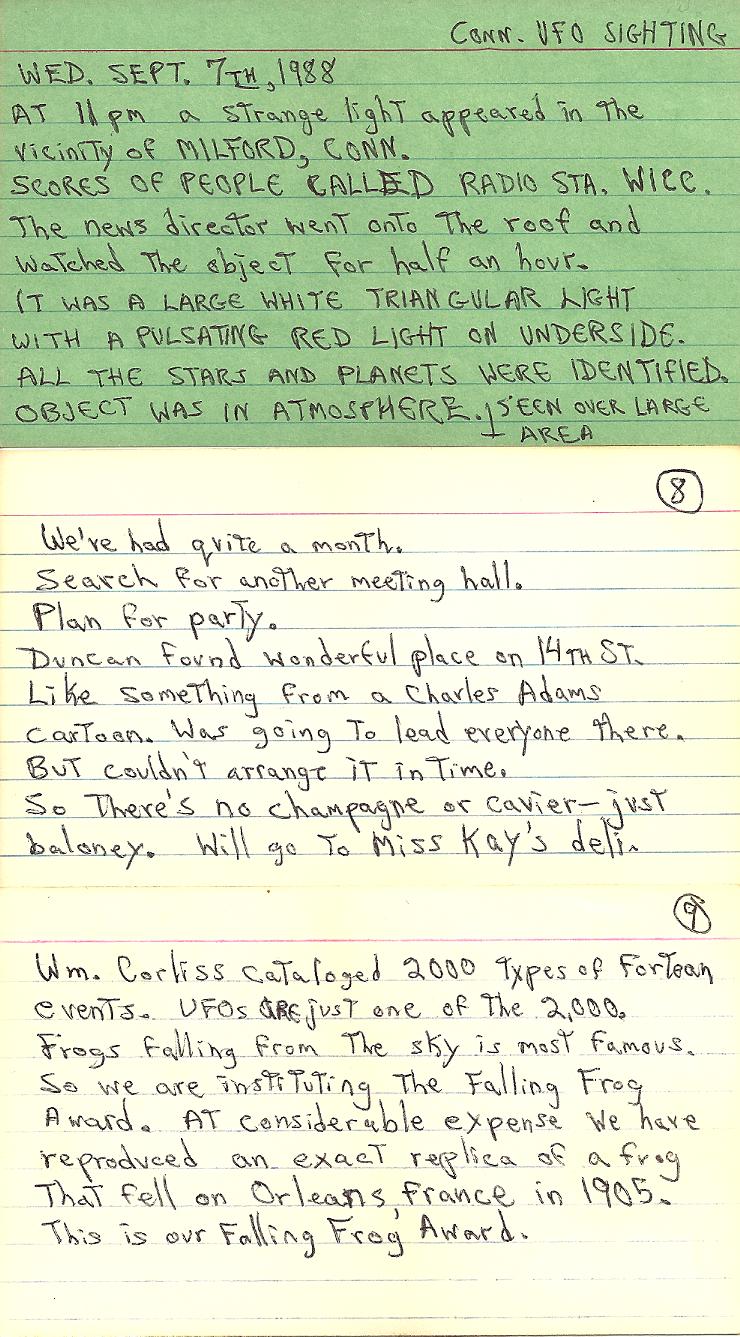 CONN. UFO SIGHTING
WED. SEPT. 7TH, 1988
AT 11 pm a strange light appeared in the
vicinity of MILFORD, CONN.
SCORES OF PEOPLE CALLED RADIO STA. WICC.
The news director went onto the roof and
watched the object for half an hour.
IT WAS A LARGE WHITE TRIANGULAR LIGHT
WITH A PULSATING RED LIGHT ON UNDERSIDE.
ALL THE STARS AND PLANETS WERE IDENTIFIED.
OBJECT WAS IN ATMOSPHERE. SEEN OVER LARGE
AREA
8
We've had quite a month.
Search for another meeting hall.
Plan for party.
Duncan found wonderful place on 14TH ST.
Like something from a Charles Adams
cartoon. Was going to lead everyone there.
But couldn't arrange it in time.
So there's no champagne or cavier—just
baloney. Will go to Miss Kay's deli.
9
Wm. Corliss cataloged 2000 types of Fortean
events. UFOs are just one of the 2,000.
Frogs falling from the sky is most famous.
So we are instituting the Falling Frog
Award. At considerable expense we have
reproduced an exact replica of a frog
that fell on Orleans, France in 1905.
This is our Falling Frog Award.